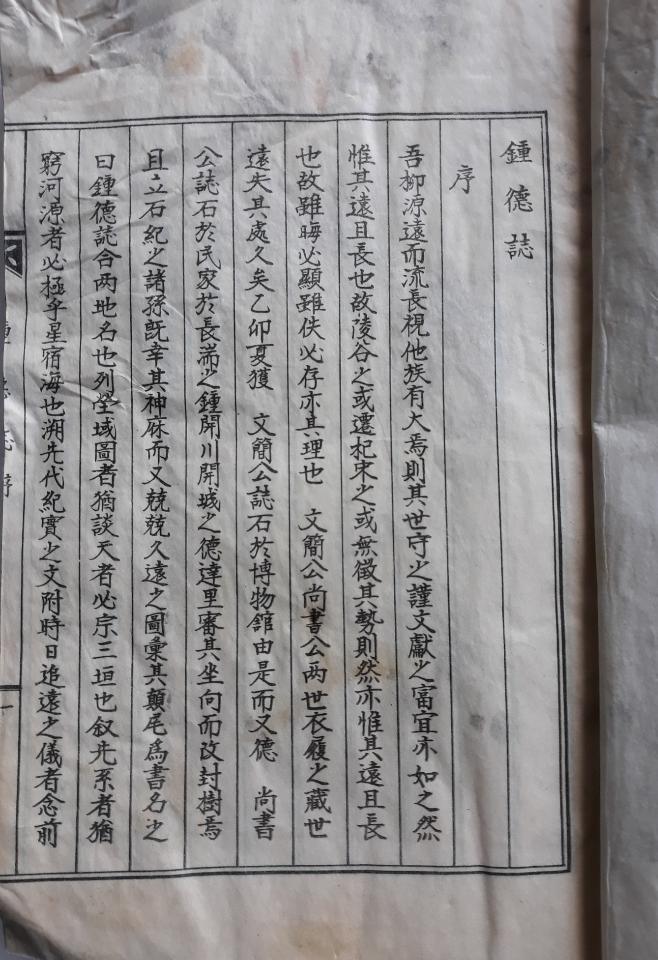 鍾德誌
序
吾柳源遠而流長視他族有大焉則其世守之謹文獻之富宜亦如之然
惟其遠且長也故陵谷之或遷杞宋之或無徵其勢則然亦惟其遠且長
也故雖晦必顯雖佚必存亦其理也 文簡公尚書公两世衣履之藏世
遠失其處久矣乙卯夏獲 文簡公誌石於博物館由是而又德 尚書
公誌石於民家於長湍之鍾開川開城之德達里審其坐向而改封樹焉
且立石紀之諸孫旣幸其神庥而又兢兢久遠之圖彙其顛尾爲書名之
曰鍾德誌合两地名也列塋域圖者猶談天者必宗三垣也叙先系者猶
窮河源者必極乎星宿海也溯先代紀實之文附時日追遠之儀者念前
鍾德誌序
一